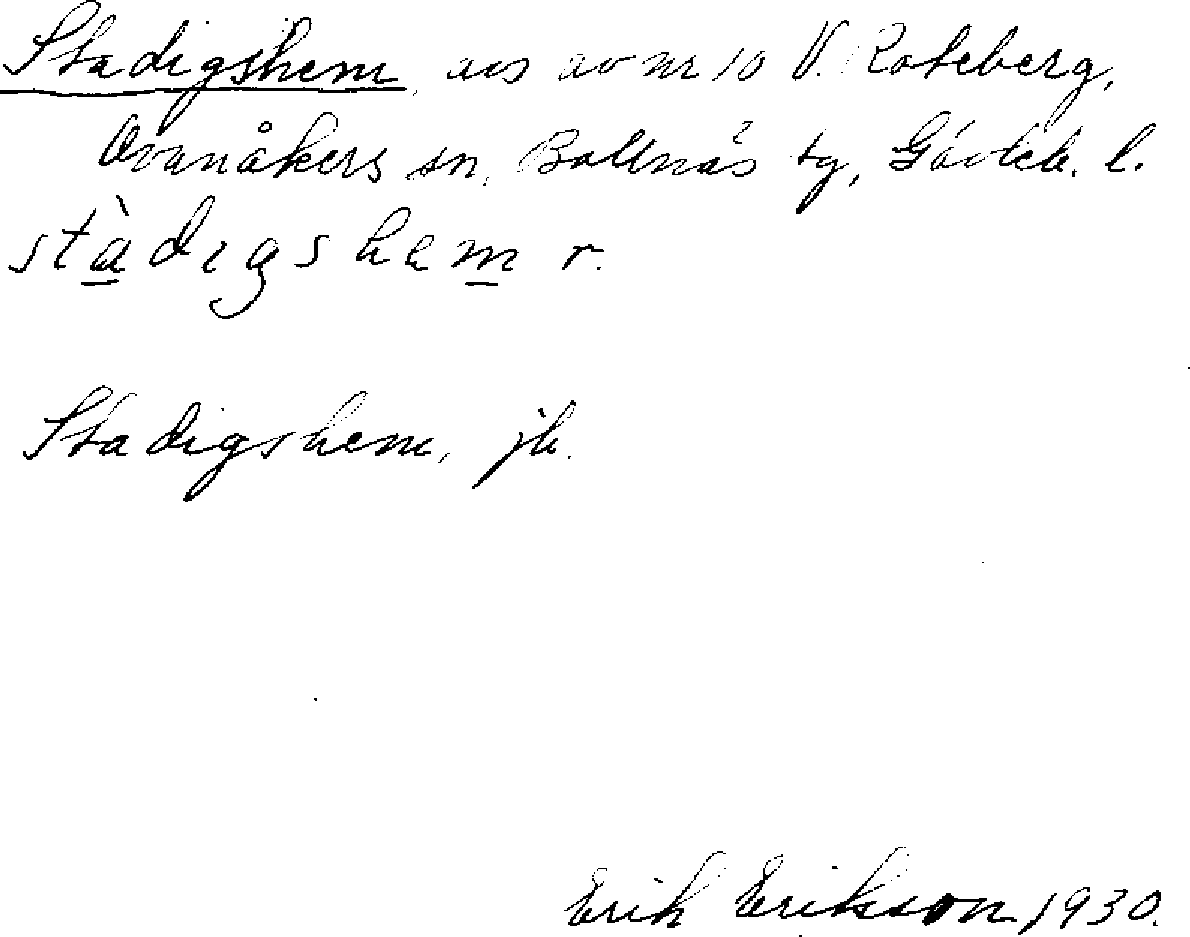 Stadigshem, avs av nr 10 V. Roteberg,
Ovanåkers sn, Bollnäs tg, Gävleb. l.
stàdigshem r.
Stadigshem, jb.
Erik Erikson 1930.